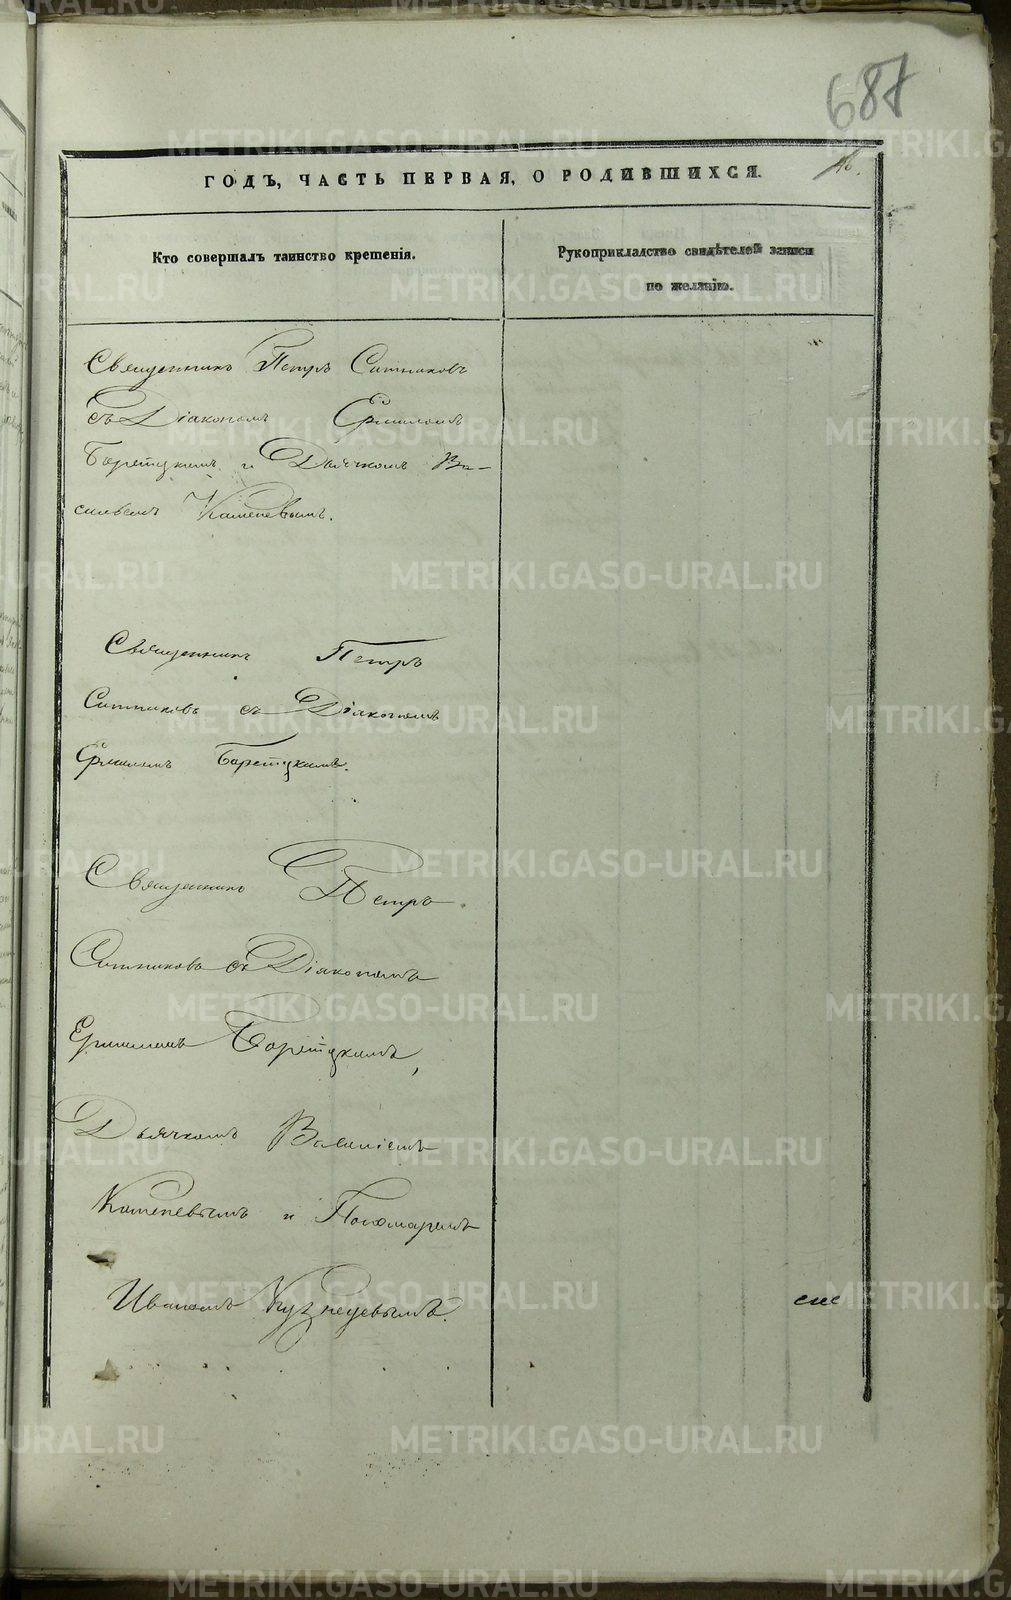 687
16.
ГОДЪ, ЧАСТЬ ПЕРВАЯ, О РОДИВШИХСЯ.
Кто совершалъ таинство крещенія.
Рукоприкладство свидѣтелей записи
по желанію.
Священникъ Петръ Ситниковъ
съ Діакономъ Ермиломъ
Борецкимъ и Дьячкомъ Ва-
сильемъ Каменевымъ.
Священникъ Петръ
Ситниковъ съ Діакономъ
Ермиломъ Борецкимъ.
Священникъ Петръ
Ситниковъ съ Діакономъ
Ермиломъ Борецкимъ,
Дьячкомъ Василіемъ
Каменевымъ и Пономаремъ
Иваномъ Кузнецовымъ.
METRIKI.GASO-URAL.RU